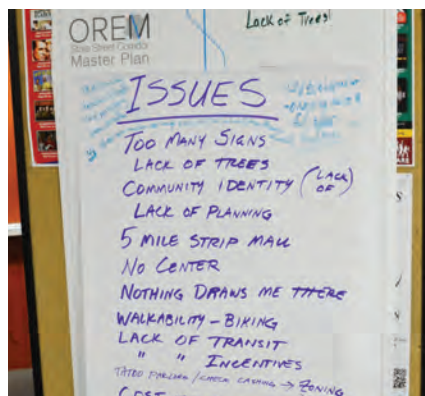 Lack of Trees!
OREM
State Street Corridor
Master Plan
ISSUES
TOO MANY SIGNS
LACK OF TREES
COMMUNITY IDENTITY (LACK OF)
LACK OF PLANNING
5 MILE STRIP MALL
NO CENTER
NOTHING DRAWS ME THERE
WALKABILITY - BIKING
LACK OF TRANSIT
" " INCENTIVES
TATOO PARLORS / CHECK CASHING → ZONING
COST